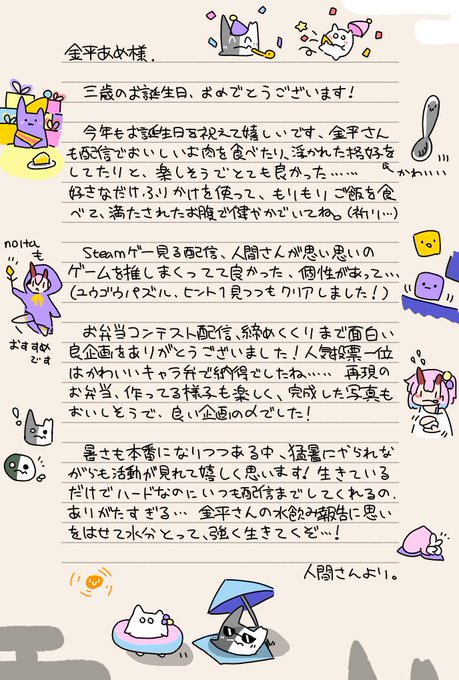 金平あめ様.
三歳のお誕生日、おめでとうございます!
今年もお誕生日を祝えて嬉しいです、金平さん
も配信でおいしいお肉を食べたり、浮かれた格好を
してたりと、楽しそうでとても良かった……
かわいい
好きなだけふりかけを使って、もりもりご飯を食
べて、満たされたお腹で健やかでいてね。(祈り…)
noita
も
おすすめ
です
Steamゲー見る配信、人間さんが思い思いの
ゲームを推しまくってて良かった、個性があって…
(ユウゴウパズル、ヒント1見つつもクリアしました!)
お弁当コンテスト配信、締めくくりまで面白い
良企画をありがとうございました!人気投票一位
はかわいいキャラ弁で納得でしたね…… 再現の
お弁当、作ってる様子も楽しく、完成した写真も
おいしそうで、良い企画の〆でした!
暑さも本番になりつつある中、猛暑にやられな
がらも活動が見れて嬉しく思います!生きている
だけでハードなのにいつも配信までしてくれるの、
ありがたすぎる… 金平さんの水飲み報告に思い
をはせて水分とって、強く生きてくぞ…!
人間さんより。